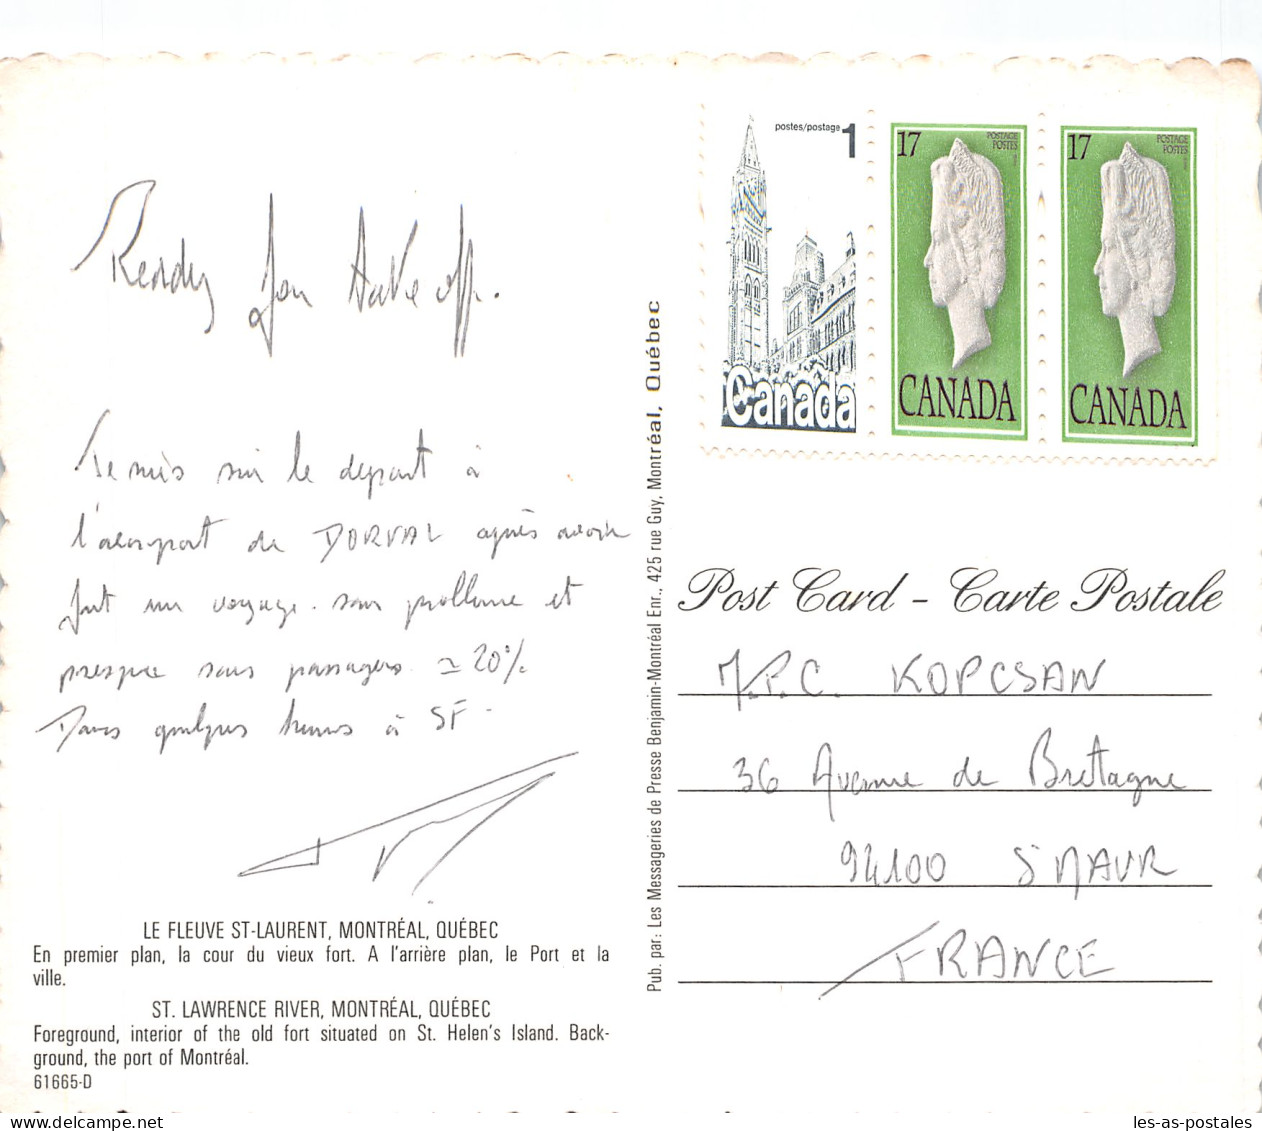 postes/postage 1
Canada
17 POSTAGE
POSTES
CANADA
17 POSTAGE
POSTES
CANADA
Ready for take off.
Je suis sur le depart à
l'aeroport de DORVAL après avoir
fait un voyage sans probleme et
presque sans passagers ≃ 20%
Dans quelques heures à SF.
LE FLEUVE ST-LAURENT, MONTRÉAL, QUÉBEC
En premier plan, la cour du vieux fort. A l'arrière plan, le Port et la
ville.
ST. LAWRENCE RIVER, MONTRÉAL, QUÉBEC
Foreground, interior of the old fort situated on St. Helen's Island. Back-
ground, the port of Montréal.
61665-D
Pub. par: Les Messageries de Presse Benjamin-Montréal Enr., 425 rue Guy, Montréal, Québec
Post Card - Carte Postale
J.P.C. KOPCSAN
36 Avenue de Bretagne
94100 St MAUR
FRANCE
les-as-postales